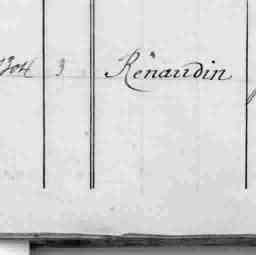 1304 3 Renaudin